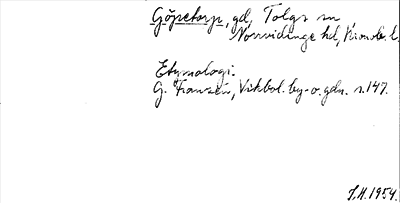 Göpetorp, gd, Tolgs sn
Norrvidinge hd, Kronob. l.
Etymologi:
G. Franzén, Vikbol. by- o. gdn. s. 147.
J.H. 1954.